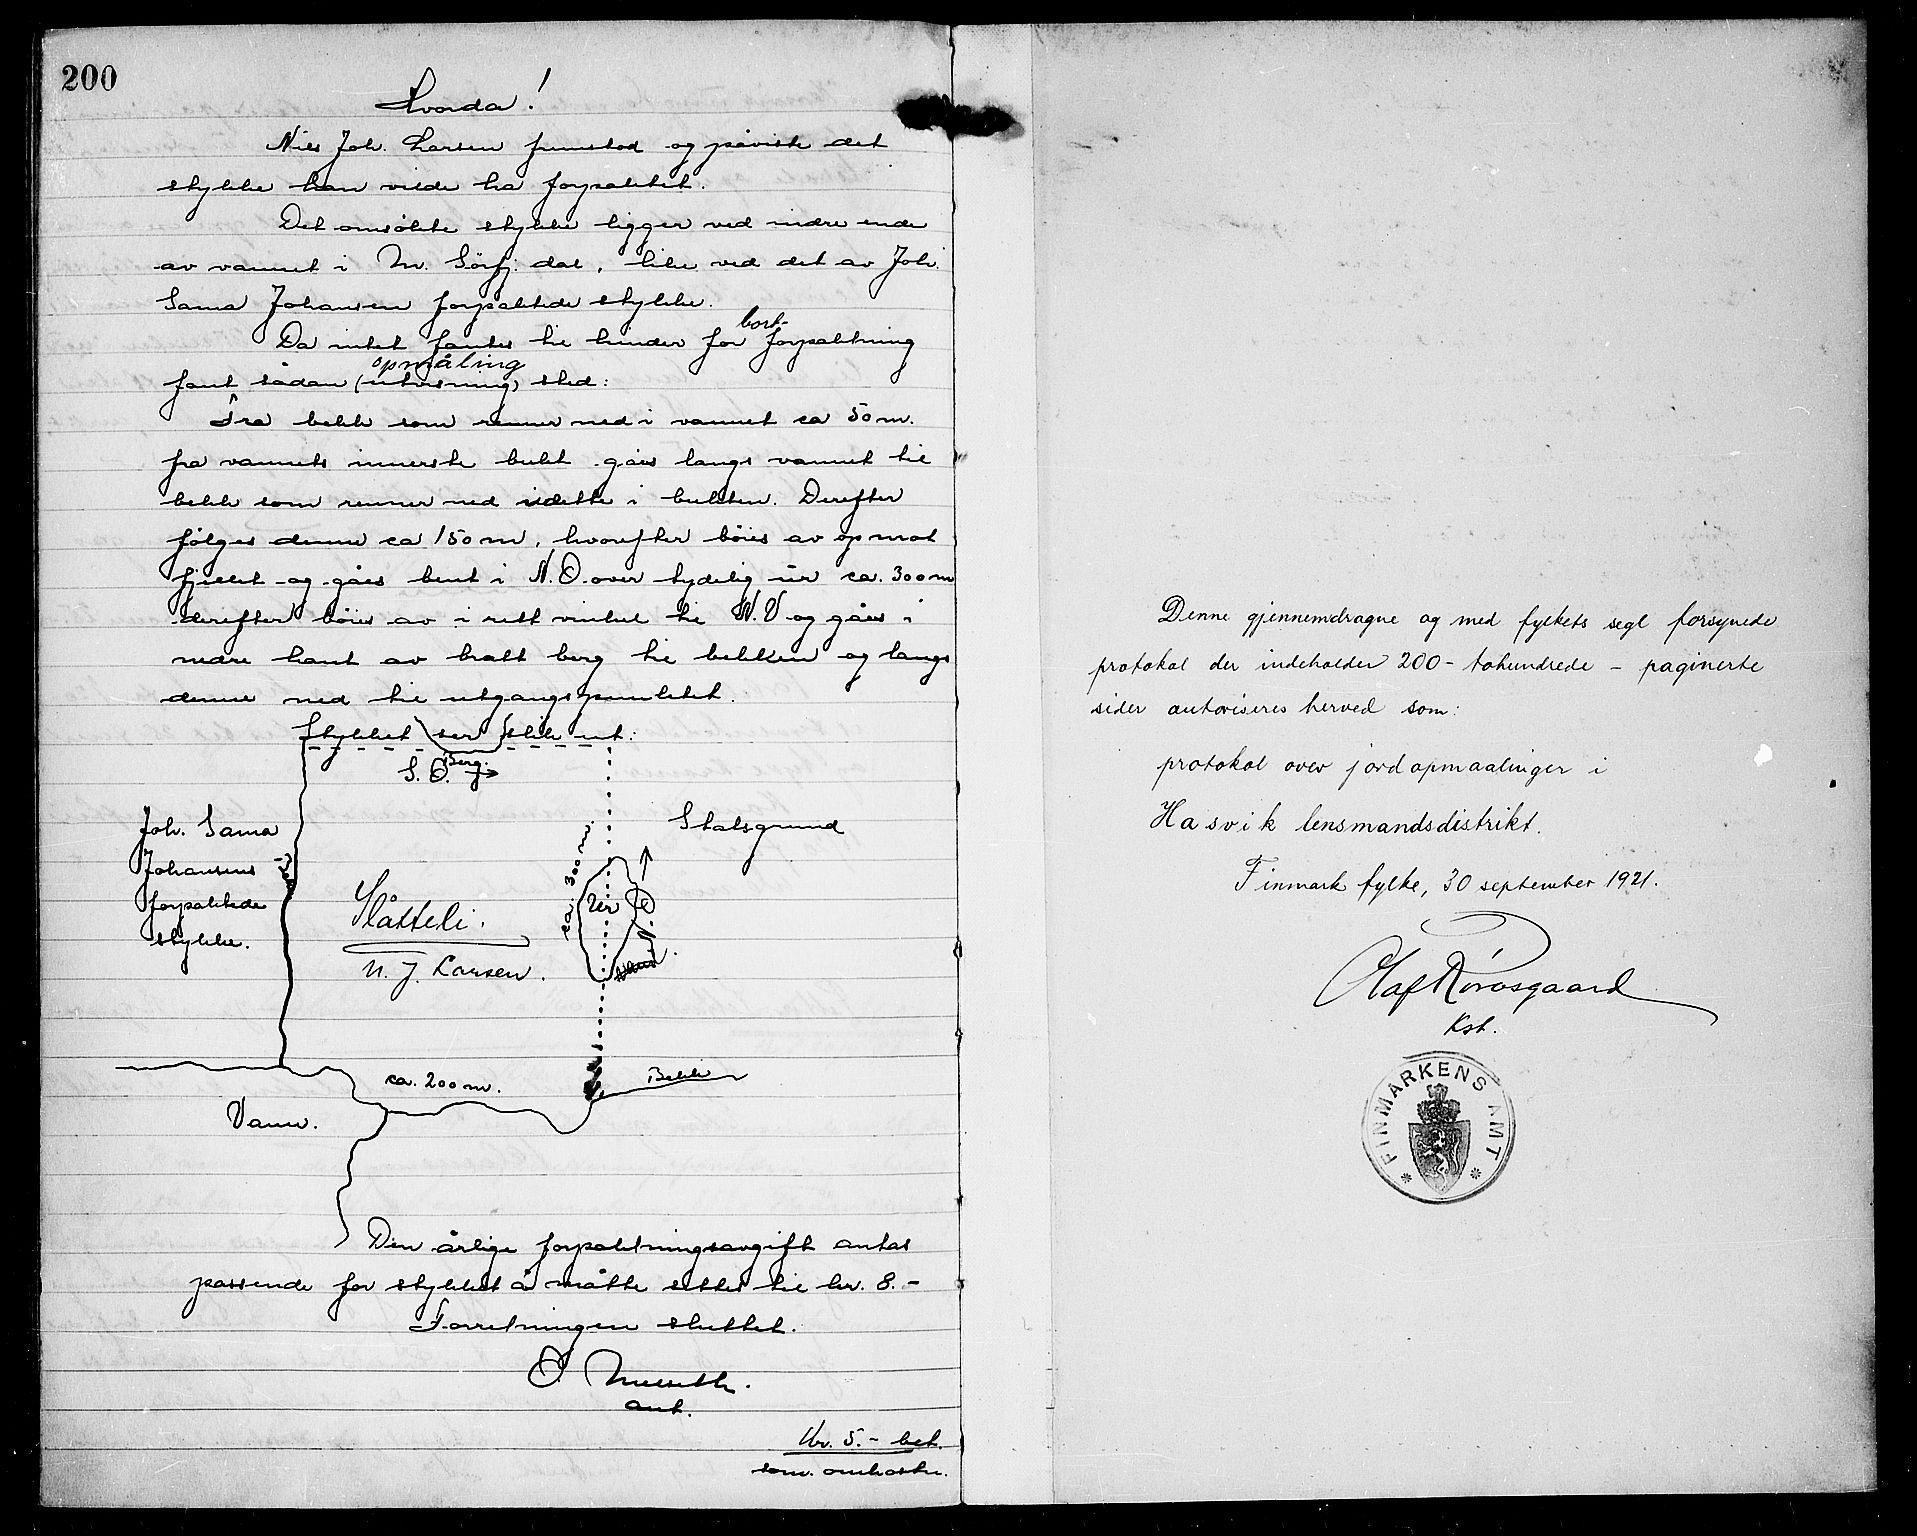 200
Hvorda!
Nils Joh. Larsen fremstod og påviste det
stykke han vilde ha forpaktet.
Det omsökte stykke ligger ved indre ende
av vannet i M. Sörfj. dal, like ved det av Joh.
Sama Johansen forpaktede stykke.
Da intet fantes til hinder for bort-forpaktning
fant sådan (utvisning) opmåling sted:
Fra bekk som renner ned i vannet ca 50 m.
fra vannets innerste bukt gåes langs vannet til
bekk som renner ned i dette i bukten. Derefter
fölges denne ca 150 m, hvorefter böies av op mot
fjellet og gåes bent i N.O. over tydelig ur ca. 300 m
derefter böies av i rett vinkel til N.V og gåes i
nedre kant av bratt berg til bekken og langs
denne ned til utgangspunktet.
Stykket ser slik ut:
Berg.
S.O.
Joh. Sama
Johansens
forpaktede
stykke.
Bekk
Slåtteli.
N. J. Larsen.
ca. 300 m.
Ur
N.O.
Statsgrund
ca. 200 m.
Bekk
Vann.
Den årlige forpaktningsavgift antas
passende for stykket å måtte settes til kr. 8.-
Forretningen sluttet.
ass.
Kr. 5.- bet.
som. omkostn.
Denne gjennemdragne og med fylkets segl forsynede
protokol der indeholder 200 - tohundrede - paginerte
sider autoriseres herved som:
protokol over jordopmaalinger i
Hasvik lensmandsdistrikt.
Finmark fylke, 30 september 1921.
Olaf Rovosgaard
Kst.
FINMARKENS AMT